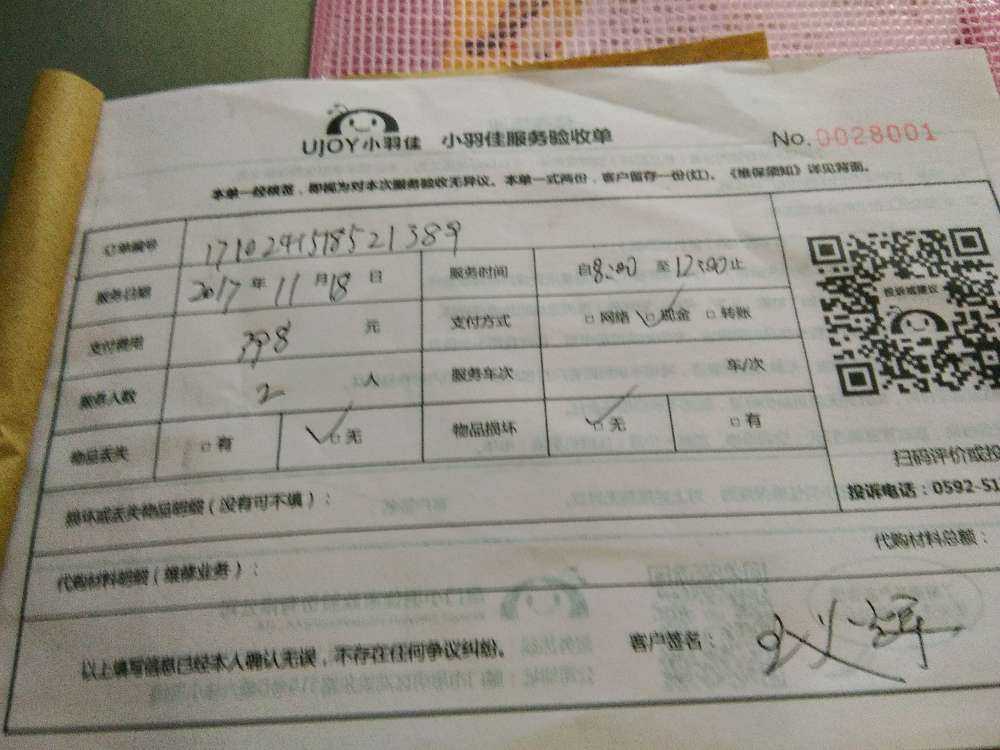 UJOY小羽佳 小羽佳服务验收单 No.0028001
本单一经核签，即视为对本次服务验收无异议。本单一式两份，客户留存一份(红)。《维保须知》详见背面。
订单编号
服务日期 2017年11月18日 服务时间 自8:00至12:00止
支付费用 398元 支付方式 □网络 □现金 □转账
服务人数 2人 服务车次 车/次
物品丢失 □有 □无 物品损坏 □无 □有
投诉或建议
扫码评价或投
投诉电话：0592-51
损坏或丢失物品明细（没有可不填）：
代购材料明细（维修业务）： 代购材料总额：
以上填写信息已经本人确认无误，不存在任何争议纠纷。 客户签名：